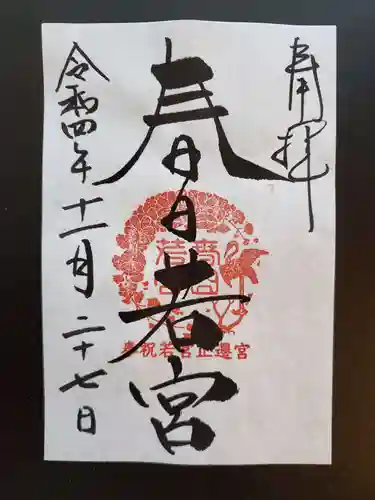 奉拝
春日若宮
奉祝若宮正遷宮
令和四年十一月二十七日